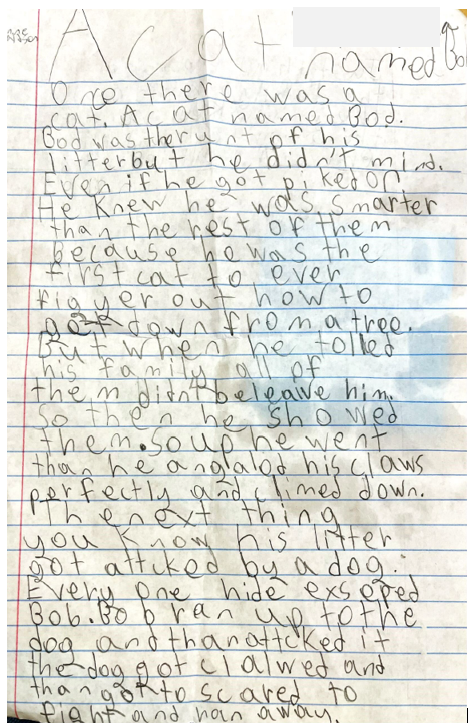 A Cat named Bo
Once there was a
cat. A cat named Bod.
Bod was the runt of his
litter but he didn't mind.
Even if he got piked on
He knew he was smarter
than the rest of them
because he was the
first cat to ever
figyer out how to
get down from a tree.
But when he tolled
his family all of
them didnt beleave him.
So then he showed
them. so up he went
than he angalod his claws
perfectly and climed down.
The next thing
you know his litter
got attcked by a dog.
Every one hide exseped
Bob. Bob ran up to the
dog and than attcked it
the dog got clalwed and
than got to scared to
fight and ran away.